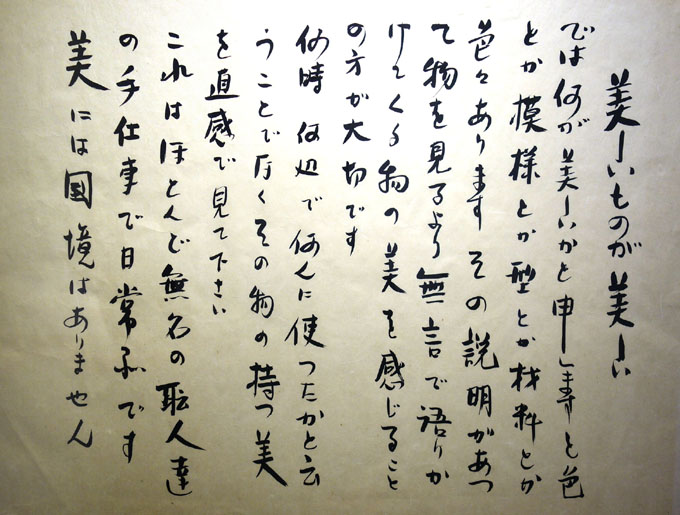 美しいものが美しい
では何が美しいかと申しますと色
とか模様とか型とか材料とか
色々あります その説明があつ
て物を見るより無言で語りか
けてくる物の美を感じること
の方が大切です
何時 何処で何んに使つたかと云
うことでなくその物の持つ美
を直感で見て下さい
これはほとんど無名の職人達
の手仕事で日常品です
美には国境はありません